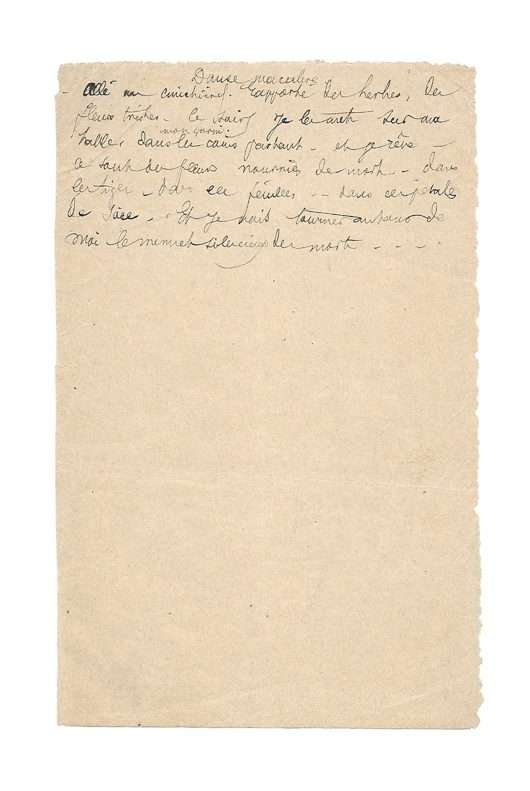 Danse macabre
- Allé au cimetière. Rapporté des herbes, des
fleurs tristes - Le soir, je les mets sur ma
mon garni
table, dans les cam partant - et je rêve -
Ce sont des fleurs nourries de morts - dans
les tiges - dans ces feuilles - - dans ces pétales
de soie - Et je vois tourner autour de
moi le menuet silencieux des morts - - - -